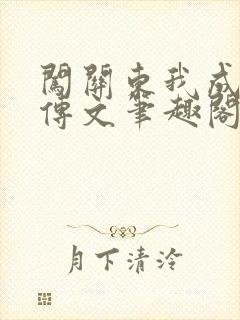 闖關東我成
傳文筆趣閣
月下清泠